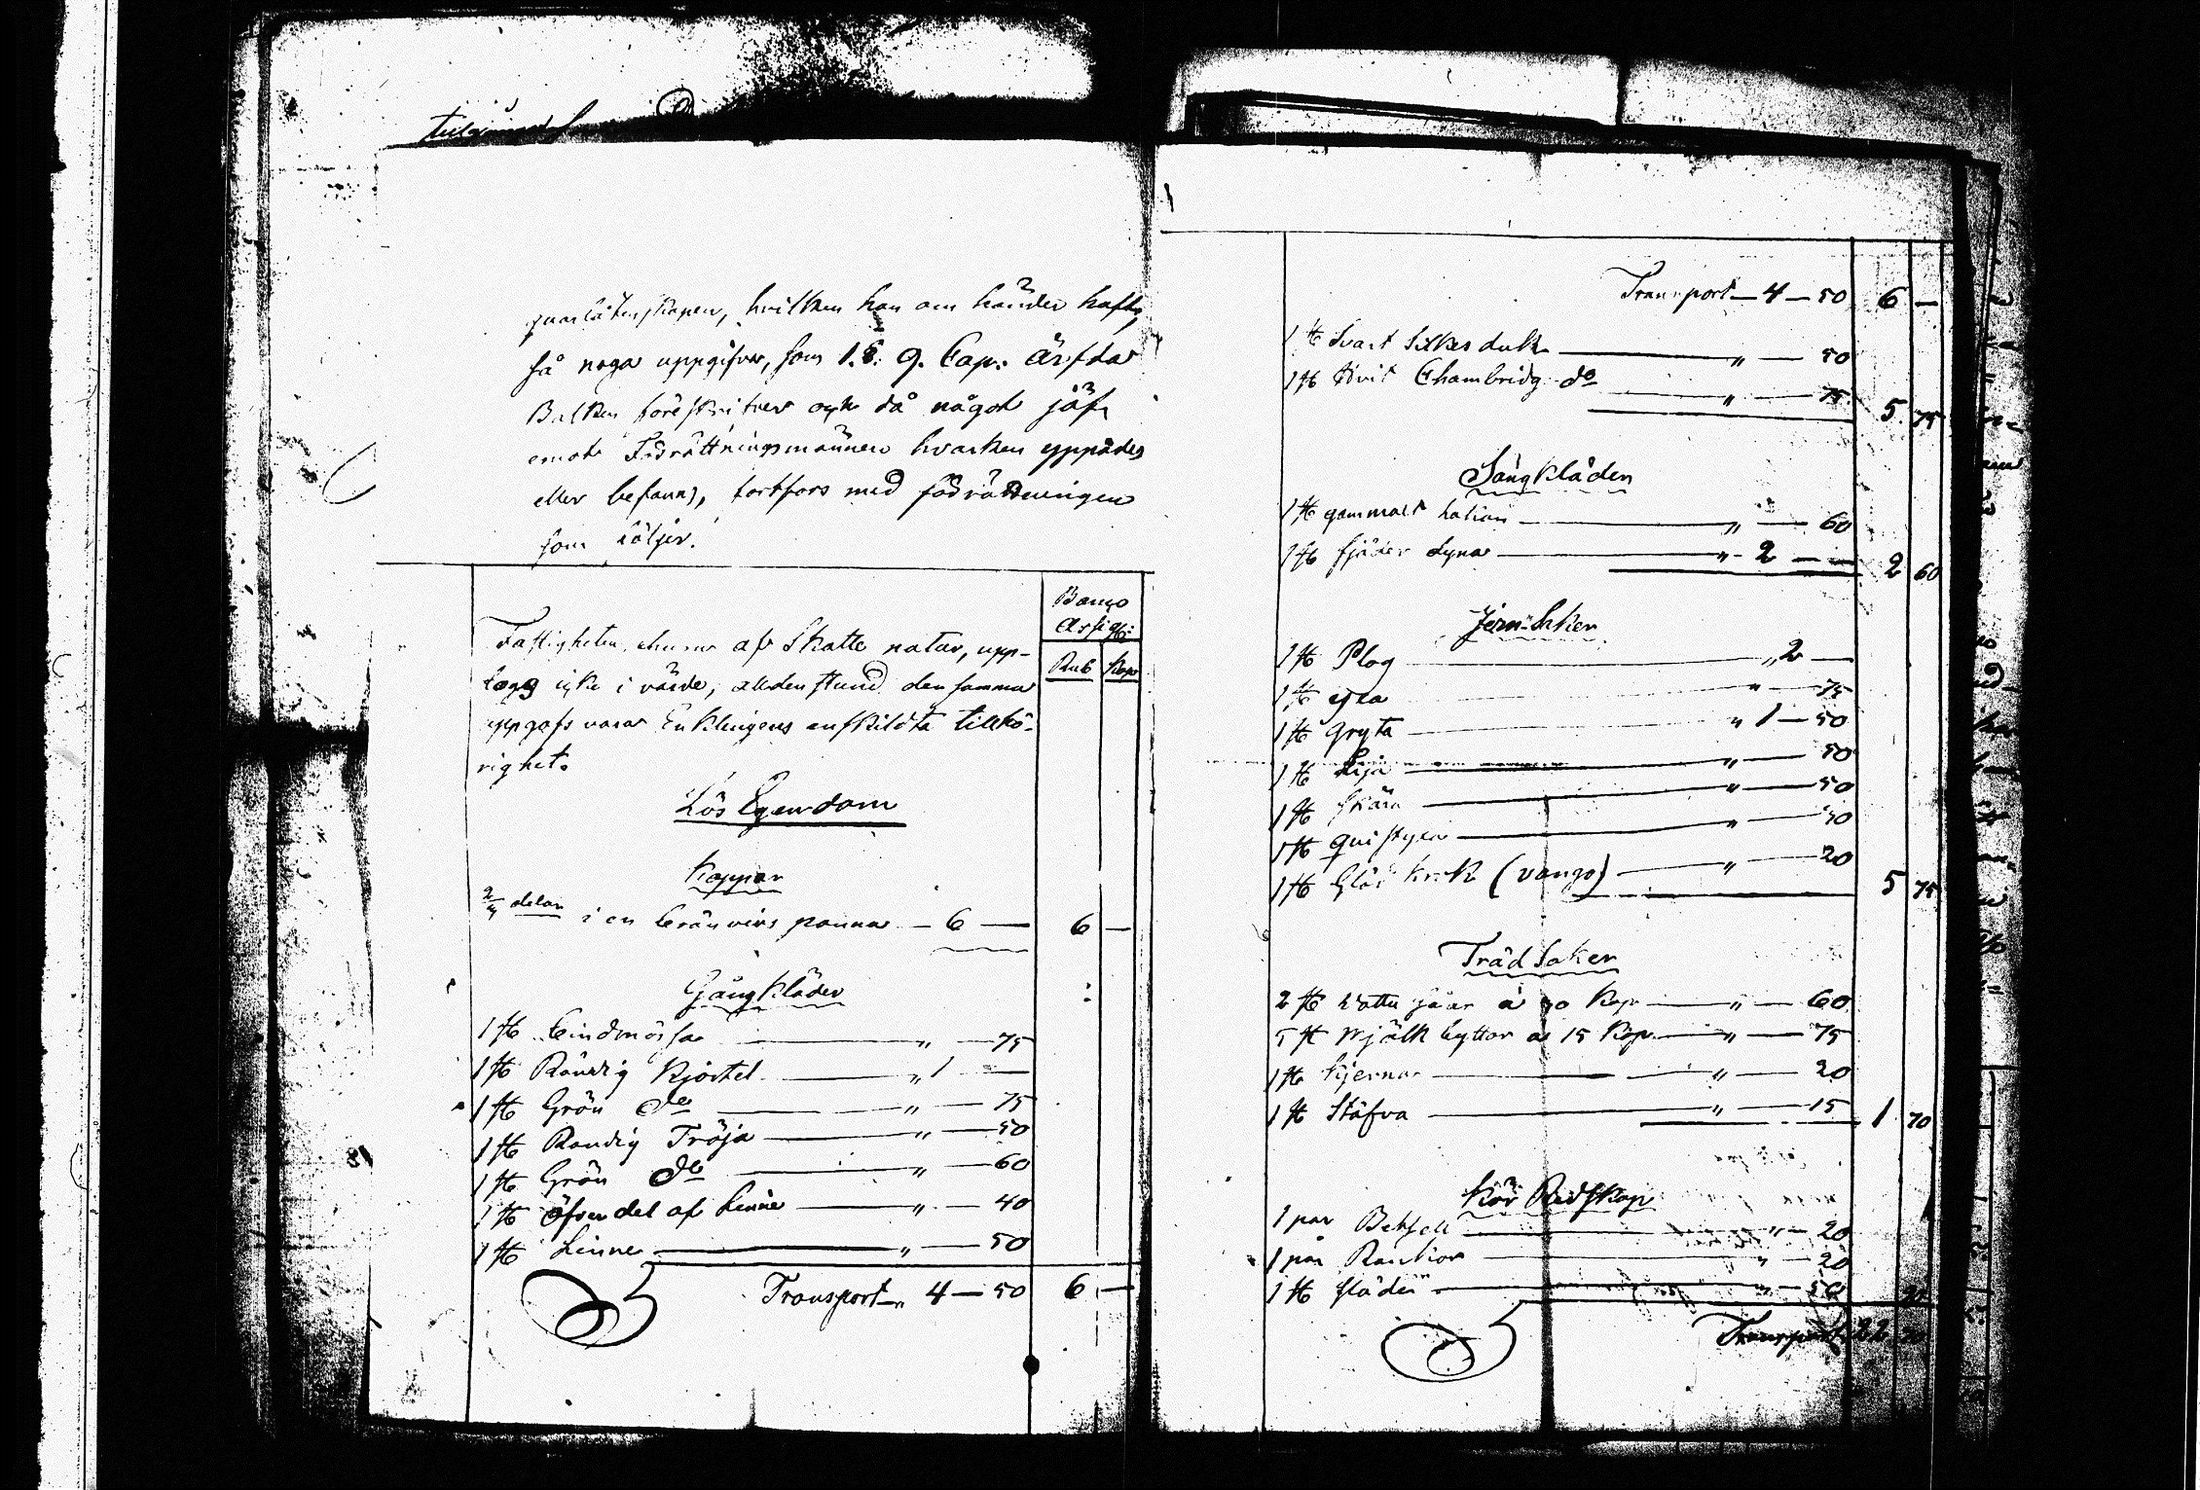 quarlåtenskapen, hvilken han om händer haft,
så noga uppgifva, som 1. §. 9. Cap. Ärfda
Balken föreskrifver och då något jäf
emot Förrättningsmännen hvarken yppades
eller befanns, fortfors med förrättningen
som följer.
Banco
Assig:
Rub Kop
Fastigheten, af Skatte natur, upp-
togs icke i värde, alldenstund den samma
uppgafs vara Enklingens enskildta tillhö-
righet.
Lös Egendom
Koppar
2/4 delar i en bränvins panna — 6 — 6 —
Gångkläder
1 st Bindmössa — „ — 75
1 st Randig Kjortel — „ 1 —
1 st Grön do — „ — 75
1 st Randig Tröja — „ — 50
1 st Grön do — „ — 60
1 st öfverdel af Linne — „ — 40
1 st Linne — „ — 50
Transport „ 4 — 50 6 —
Transport — 4 — 50 6 —
1 st Svart Silkes duk — „ — 50
1 st Hvit Chambridg do — „ — 75 5 75
Sängkläder
1 st gammalt — „ — 60
1 st fjäder dyna — „ - 2 — 2 60
Jern Saker
1 st Plog — „ 2 —
1 st yxa — „ — 75
1 st Gryta — „ 1 — 50
1 st Lija — „ — 50
1 st skära — „ — 50
1 st — „ — 30
1 st krok (vango) — „ — 20 5 75
Träd Saker
2 st Vattu såar à 30 Kop — „ — 60
5 st Mjölk byttor a 15 Kop — „ — 75
1 st Kjerna — „ — 20
1 st Stäfva — „ — 15 1 70
Kör Redskap
1 par Betsell — „ — 20
1 par — „ — 20
1 st släde — „ — 50 90
Transport 22 70